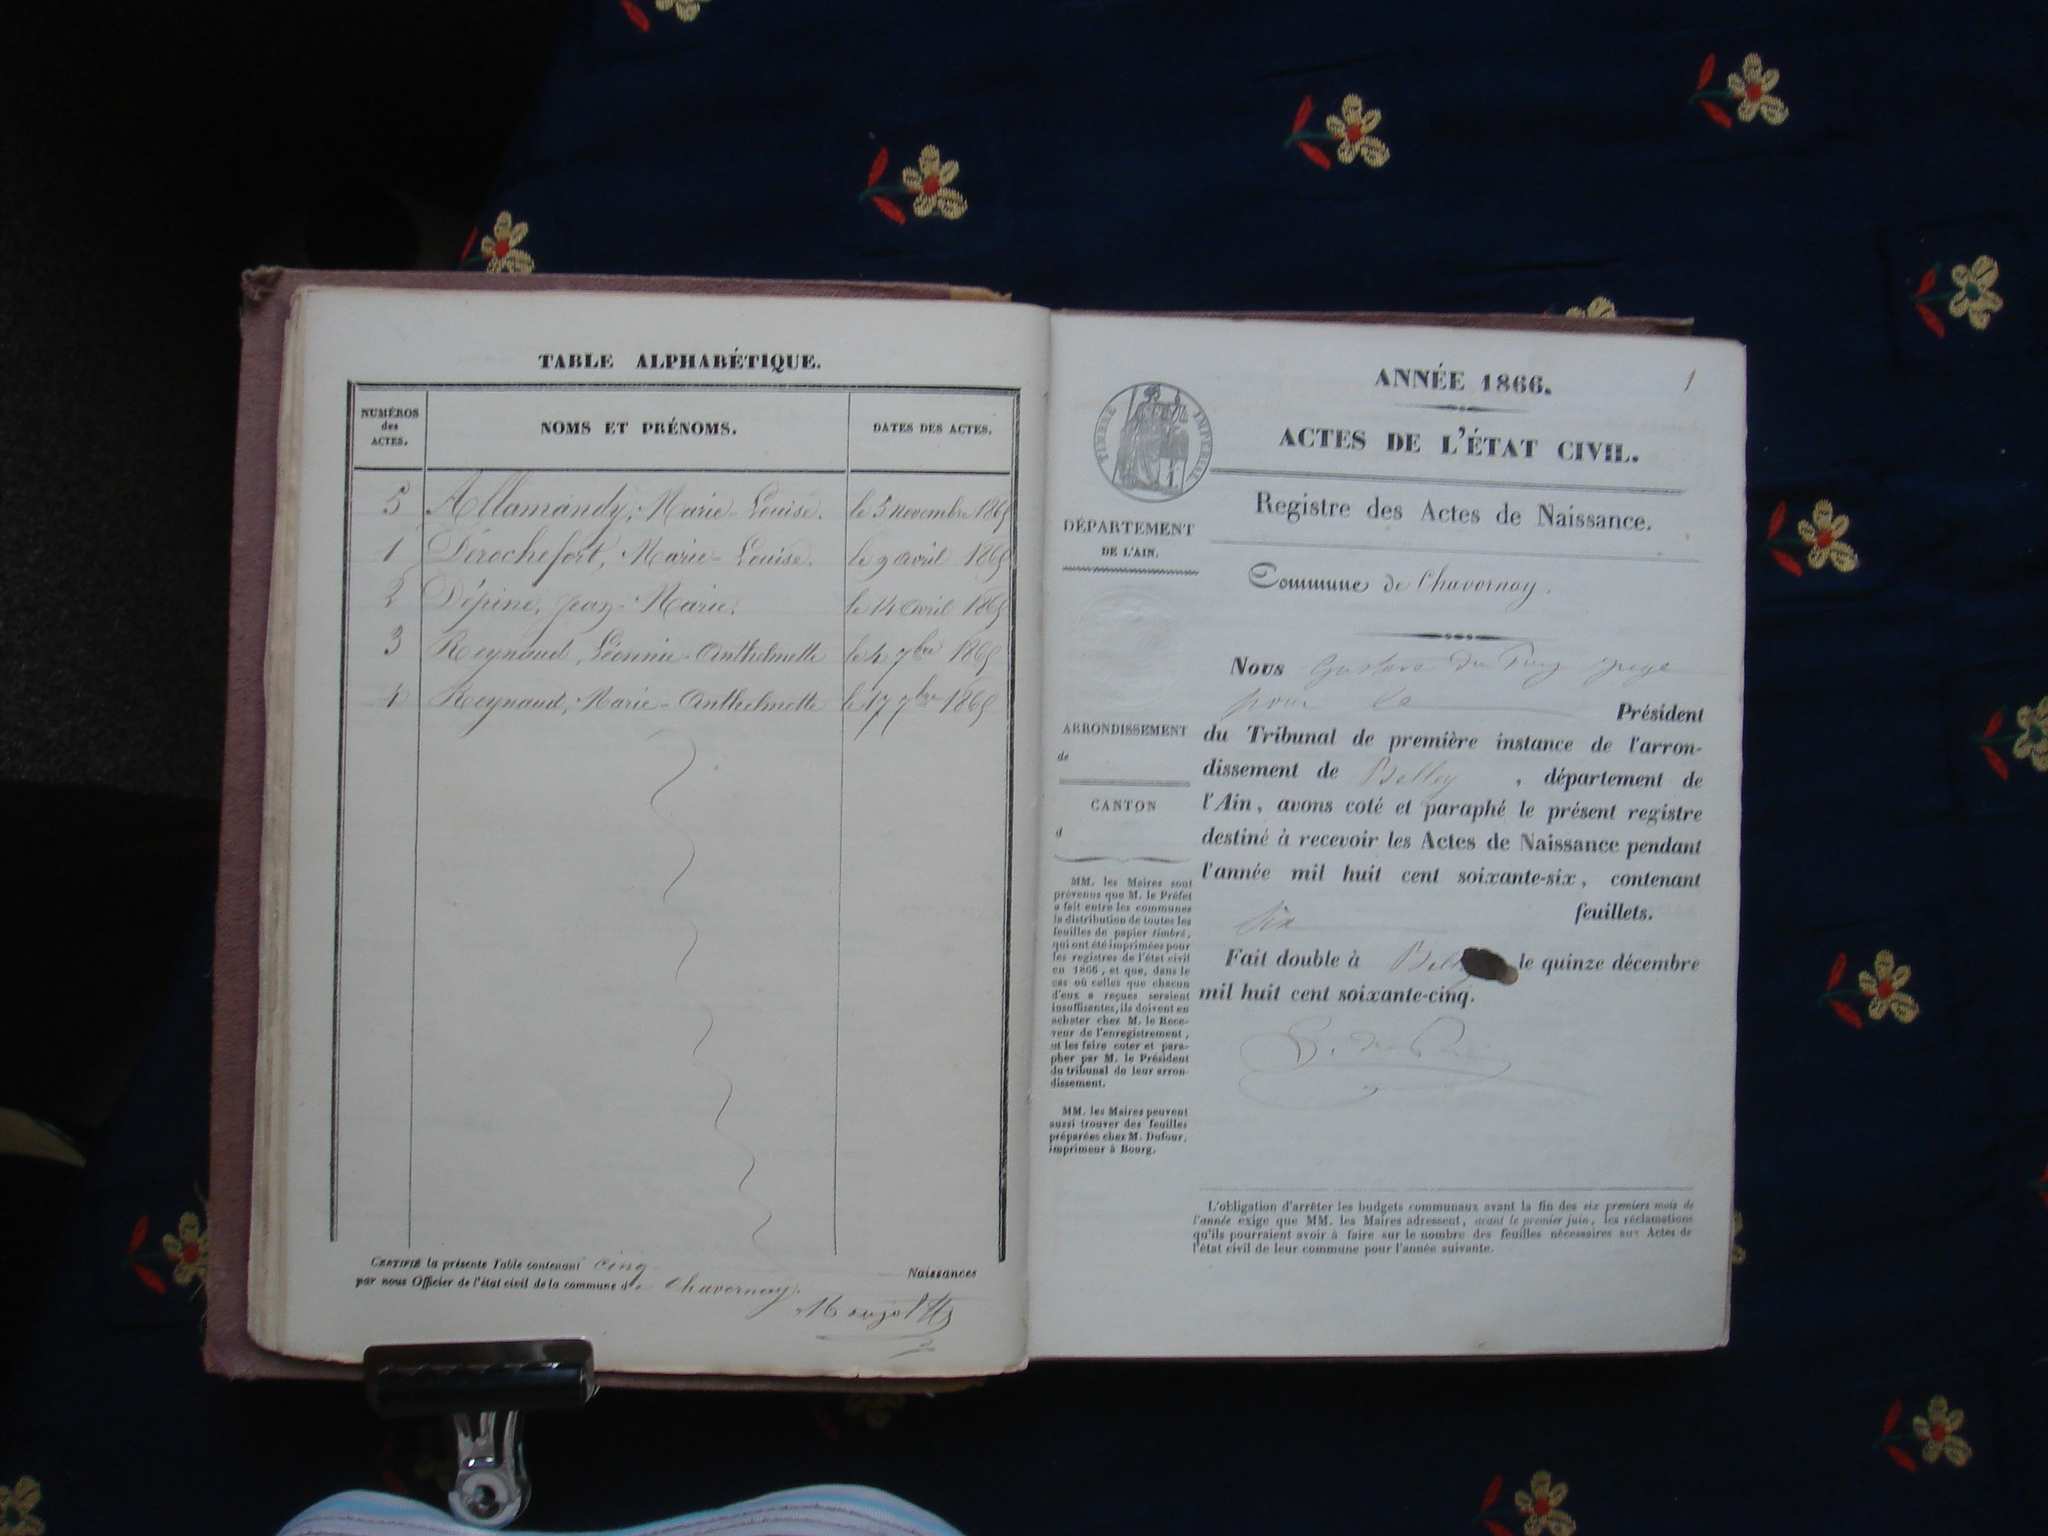 TABLE ALPHABÉTIQUE.
NUMÉROS des ACTES.
NOMS ET PRÉNOMS.
DATES DES ACTES.
5 Allamandy, Marie-Louise. le 5 novembre 1865
1 Dérochefort, Marie-Louise. le 9 avril 1865
2 Dépine, Jean-Marie. le 14 avril 1865
3 Reynaud, Léonnie-Anthelmette le 4 7bre 1865
4 Reynaud, Marie-Anthelmette le 17 7bre 1865
CERTIFIÉ la présente Table contenant cinq Naissances
par nous Officier de l'état civil de la commune de Chavornay.
1
ANNÉE 1866.
ACTES DE L'ÉTAT CIVIL.
TIMBRE IMPÉRIAL
Registre des Actes de Naissance.
DÉPARTEMENT
DE L'AIN.
Commune de Chavornay.
Nous Gustave du Puy juge
pour le Président
du Tribunal de première instance de l'arron-
dissement de Belley, département de
l'Ain, avons coté et paraphé le présent registre
destiné à recevoir les Actes de Naissance pendant
l'année mil huit cent soixante-six, contenant
six feuillets.
Fait double à Belley le quinze décembre
mil huit cent soixante-cinq.
ARRONDISSEMENT
de
CANTON
d
MM. les Maires sont
prévenus que M. le Préfet
a fait entre les communes
la distribution de toutes les
feuilles de papier timbré,
qui ont été imprimées pour
les registres de l'état civil
en 1866, et que, dans le
cas où celles que chacun
d'eux a reçues seraient
insuffisantes, ils doivent en
acheter chez M. le Rece-
veur de l'enregistrement,
et les faire coter et para-
pher par M. le Président
du tribunal de leur arron-
dissement.
MM. les Maires peuvent
aussi trouver des feuilles
préparées chez M. Dufour,
imprimeur à Bourg.
L'obligation d'arrêter les budgets communaux avant la fin des six premiers mois de
l'année exige que MM. les Maires adressent, avant le premier juin, les réclamations
qu'ils pourraient avoir à faire sur le nombre des feuilles nécessaires aux Actes de
l'état civil de leur commune pour l'année suivante.